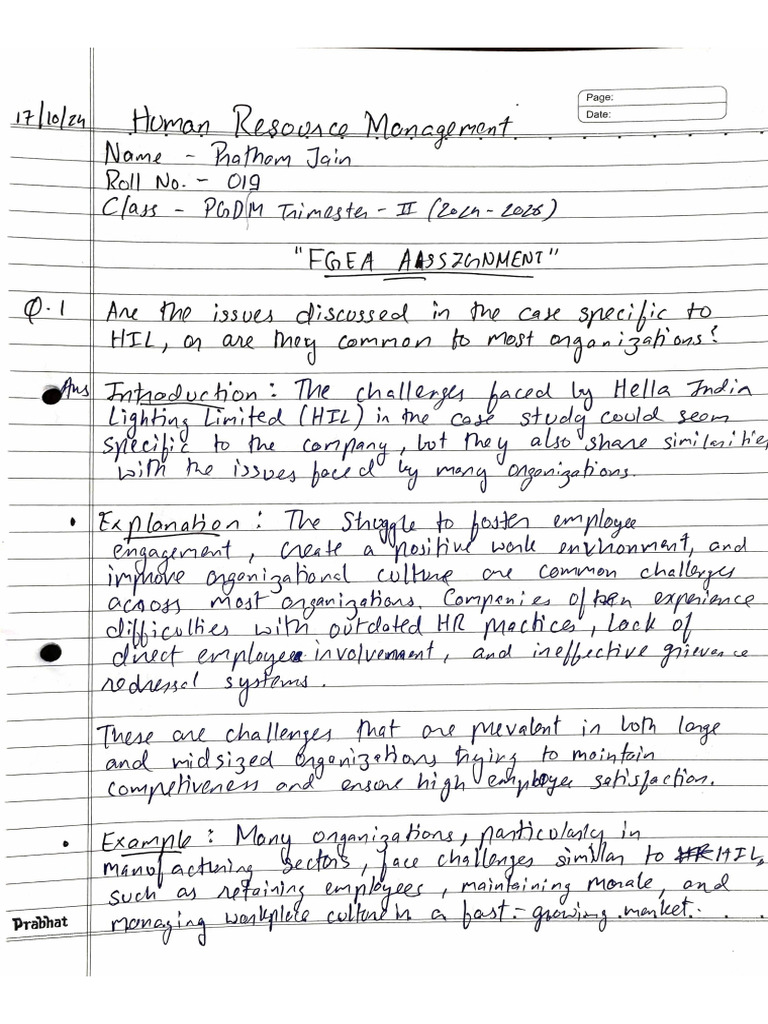 Page:
17/10/24 Human Resource Management
Date:
Name - Pratham Jain
Roll No. - 019
Class - PGDM Trimester - II (2024-2026)
"FGEA ASSIGNMENT"
Q.1 Are the issues discussed in the case specific to
HIL, or are they common to most organizations?
Ans Introduction: The challenges faced by Hella India
Lighting Limited (HIL) in the case study could seem
specific to the company, but they also share similarities
with the issues faced by many organizations.
• Explanation: The Struggle to foster employee
engagement, create a positive work environment, and
improve organizational culture are common challenges
across most organizations. Companies often experience
difficulties with outdated HR practices, lack of
direct employee involvement, and ineffective grievance
redressal systems.
These are challenges that are prevalent in both large
and midsized organizations trying to maintain
competiveness and ensure high employee satisfaction.
• Example: Many organizations, particularly in
manufacturing sectors, face challenges similar to HIL,
such as retaining employees, maintaining morale, and
managing workplace culture in a fast-growing market.
Prabhat